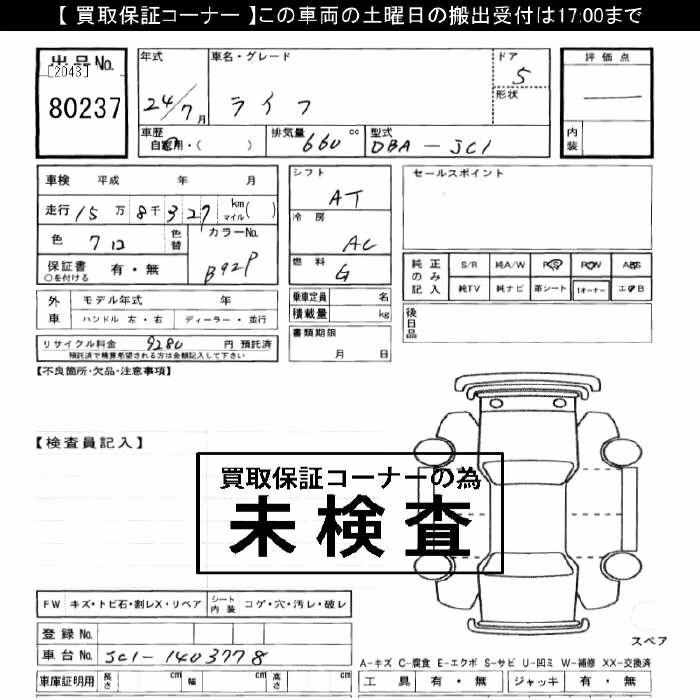 【 買取保証コーナー 】この車両の土曜日の搬出受付は17:00まで
出品No.
[2043]
80237
年式
24/7月
車名・グレード
ライフ
ドア
5
形状
評価点
内装
車歴
自家用・( )
排気量 660 cc
型式 DBA-JC1
車検 平成 年 月
走行 15万8千327 km マイル( )
色 クロ 色替
カラーNo.
B92P
保証書 有・無
○を付ける
シフト
AT
冷房
AC
燃料
G
セールスポイント
純正のみ記入
S/R 純A/W P/S P/W ABS
純TV 純ナビ 革シート 1オーナー エアB
外車
モデル年式 年
ハンドル 左・右 ディーラー・並行
乗車定員 名
積載量 kg
書類期限
月 日
後日品
リサイクル料金 9280 円 預託済
預託済で精算希望される方は金額記入して下さい
【不良箇所・欠品・注意事項】
【検査員記入】
買取保証コーナーの為
未検査
FW キズ・トビ石・割レX・リペア シート内装 コゲ・穴・汚レ・破レ
登録No.
車台No. JC1-1403778
車庫証明用 長さ cm 幅 cm 高さ cm
スペア
A-キズ C-腐食 E-エクボ S-サビ U-凹ミ W-補修 XX-交換済
工具 有・無 ジャッキ 有・無